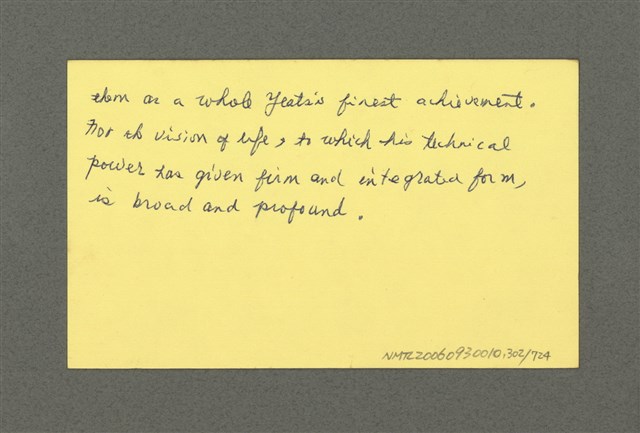 them as a whole Yeats's finest achievement.
For its vision of life, to which his technical
power has given firm and integrated form,
is broad and profound.
NMTL20060930010,302/724